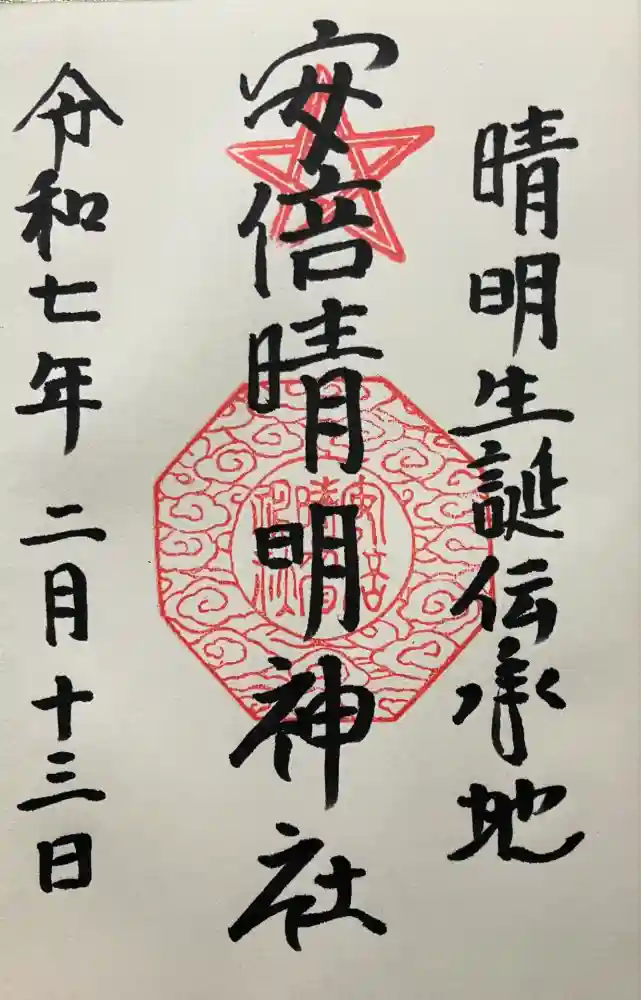 晴明生誕伝承地
安倍晴明神社
令和七年 二月十三日